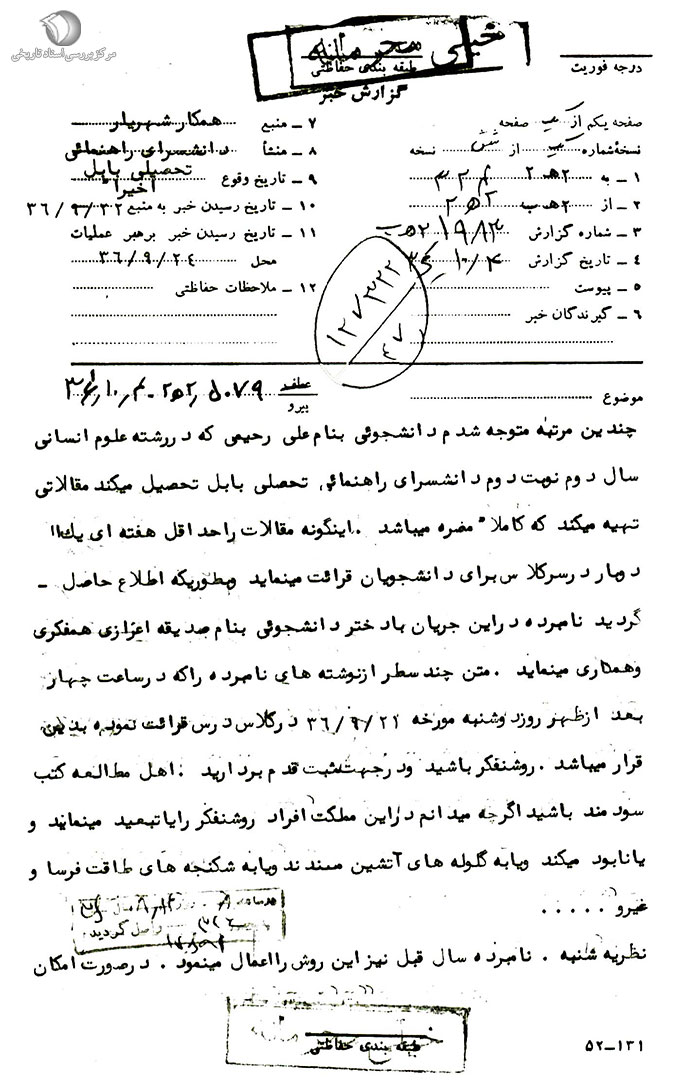 مرکز بررسی اسناد تاریخی
خیلی محرمانه
طبقه بندی حفاظتی
گزارش خبر
درجه فوریت
صفحه یکم از یک صفحه
نسخه شماره یک از شش نسخه
۱ ـ به ۲ هـ ۳۲۴
۲ ـ از ۲ هـ ب ۲ هـ ۲
۳ ـ شماره گزارش ۱۹۸۳ / ۲ هـ ب
۴ ـ تاریخ گزارش ۳۶/۱۰/۴
۵ ـ پیوست
۶ ـ گیرندگان خبر
۷ ـ منبع همکار شهریار
۸ ـ منشأ دانشسرای راهنمائی تحصیلی بابل
۹ ـ تاریخ وقوع اخیرا
۱۰ ـ تاریخ رسیدن خبر به منبع ۳۶/۹/۲۲
۱۱ ـ تاریخ رسیدن خبر برهبر عملیات
محل ۳۶/۹/۲٤
۱۲ ـ ملاحظات حفاظتی
۱۲۷۳۲۲
۴۷
موضوع
عطف
پیرو
۵۰۷۹ / ۲ هـ ۲ ـ ۳۶/۱۰/۴
چندین مرتبه متوجه شدم دانشجوئی بنام علی رحیمی که در رشته علوم انسانی
سال دوم نوبت دوم دانشسرای راهنمائی تحصلی بابل تحصیل میکند مقالاتی
تهیه میکند که کاملا" مضره میباشد .اینگونه مقالات را حداقل هفته ای یك یا
دوبار درسر کلاس برای دانشجویان قرائت مینماید وبطوریکه اطلاع حاصل ـ
گردید نامبرده دراین جریان بادختر دانشجوئی بنام صدیقه اعزازی همفکری
وهمکاری مینماید .متن چند سطر ازنوشته های نامبرده راکه درساعت چهار
بعد ازظهر روزدوشنبه مورخه ۳۶/۹/۲۱ درکلاس درس قرائت نموده بدین
قرار میباشد .روشنفکر باشید ودرجهت مثبت قدم بردارید .اهل مطالعه کتب
سودمند باشید اگرچه میدانم دراین مملکت افراد روشنفکر رایاتبعید مینمایند و
یانابود میکند ویابه گلوله های آتشین میبندند ویابه شکنجه های طاقت فرسا و
غیرو .....
واصل گردید
نظریه شنبه . نامبرده سال قبل نیز این روش رااعمال مینمود . درصورت امکان
طبقه بندی حفاظتی
۵۲-۱۳۱